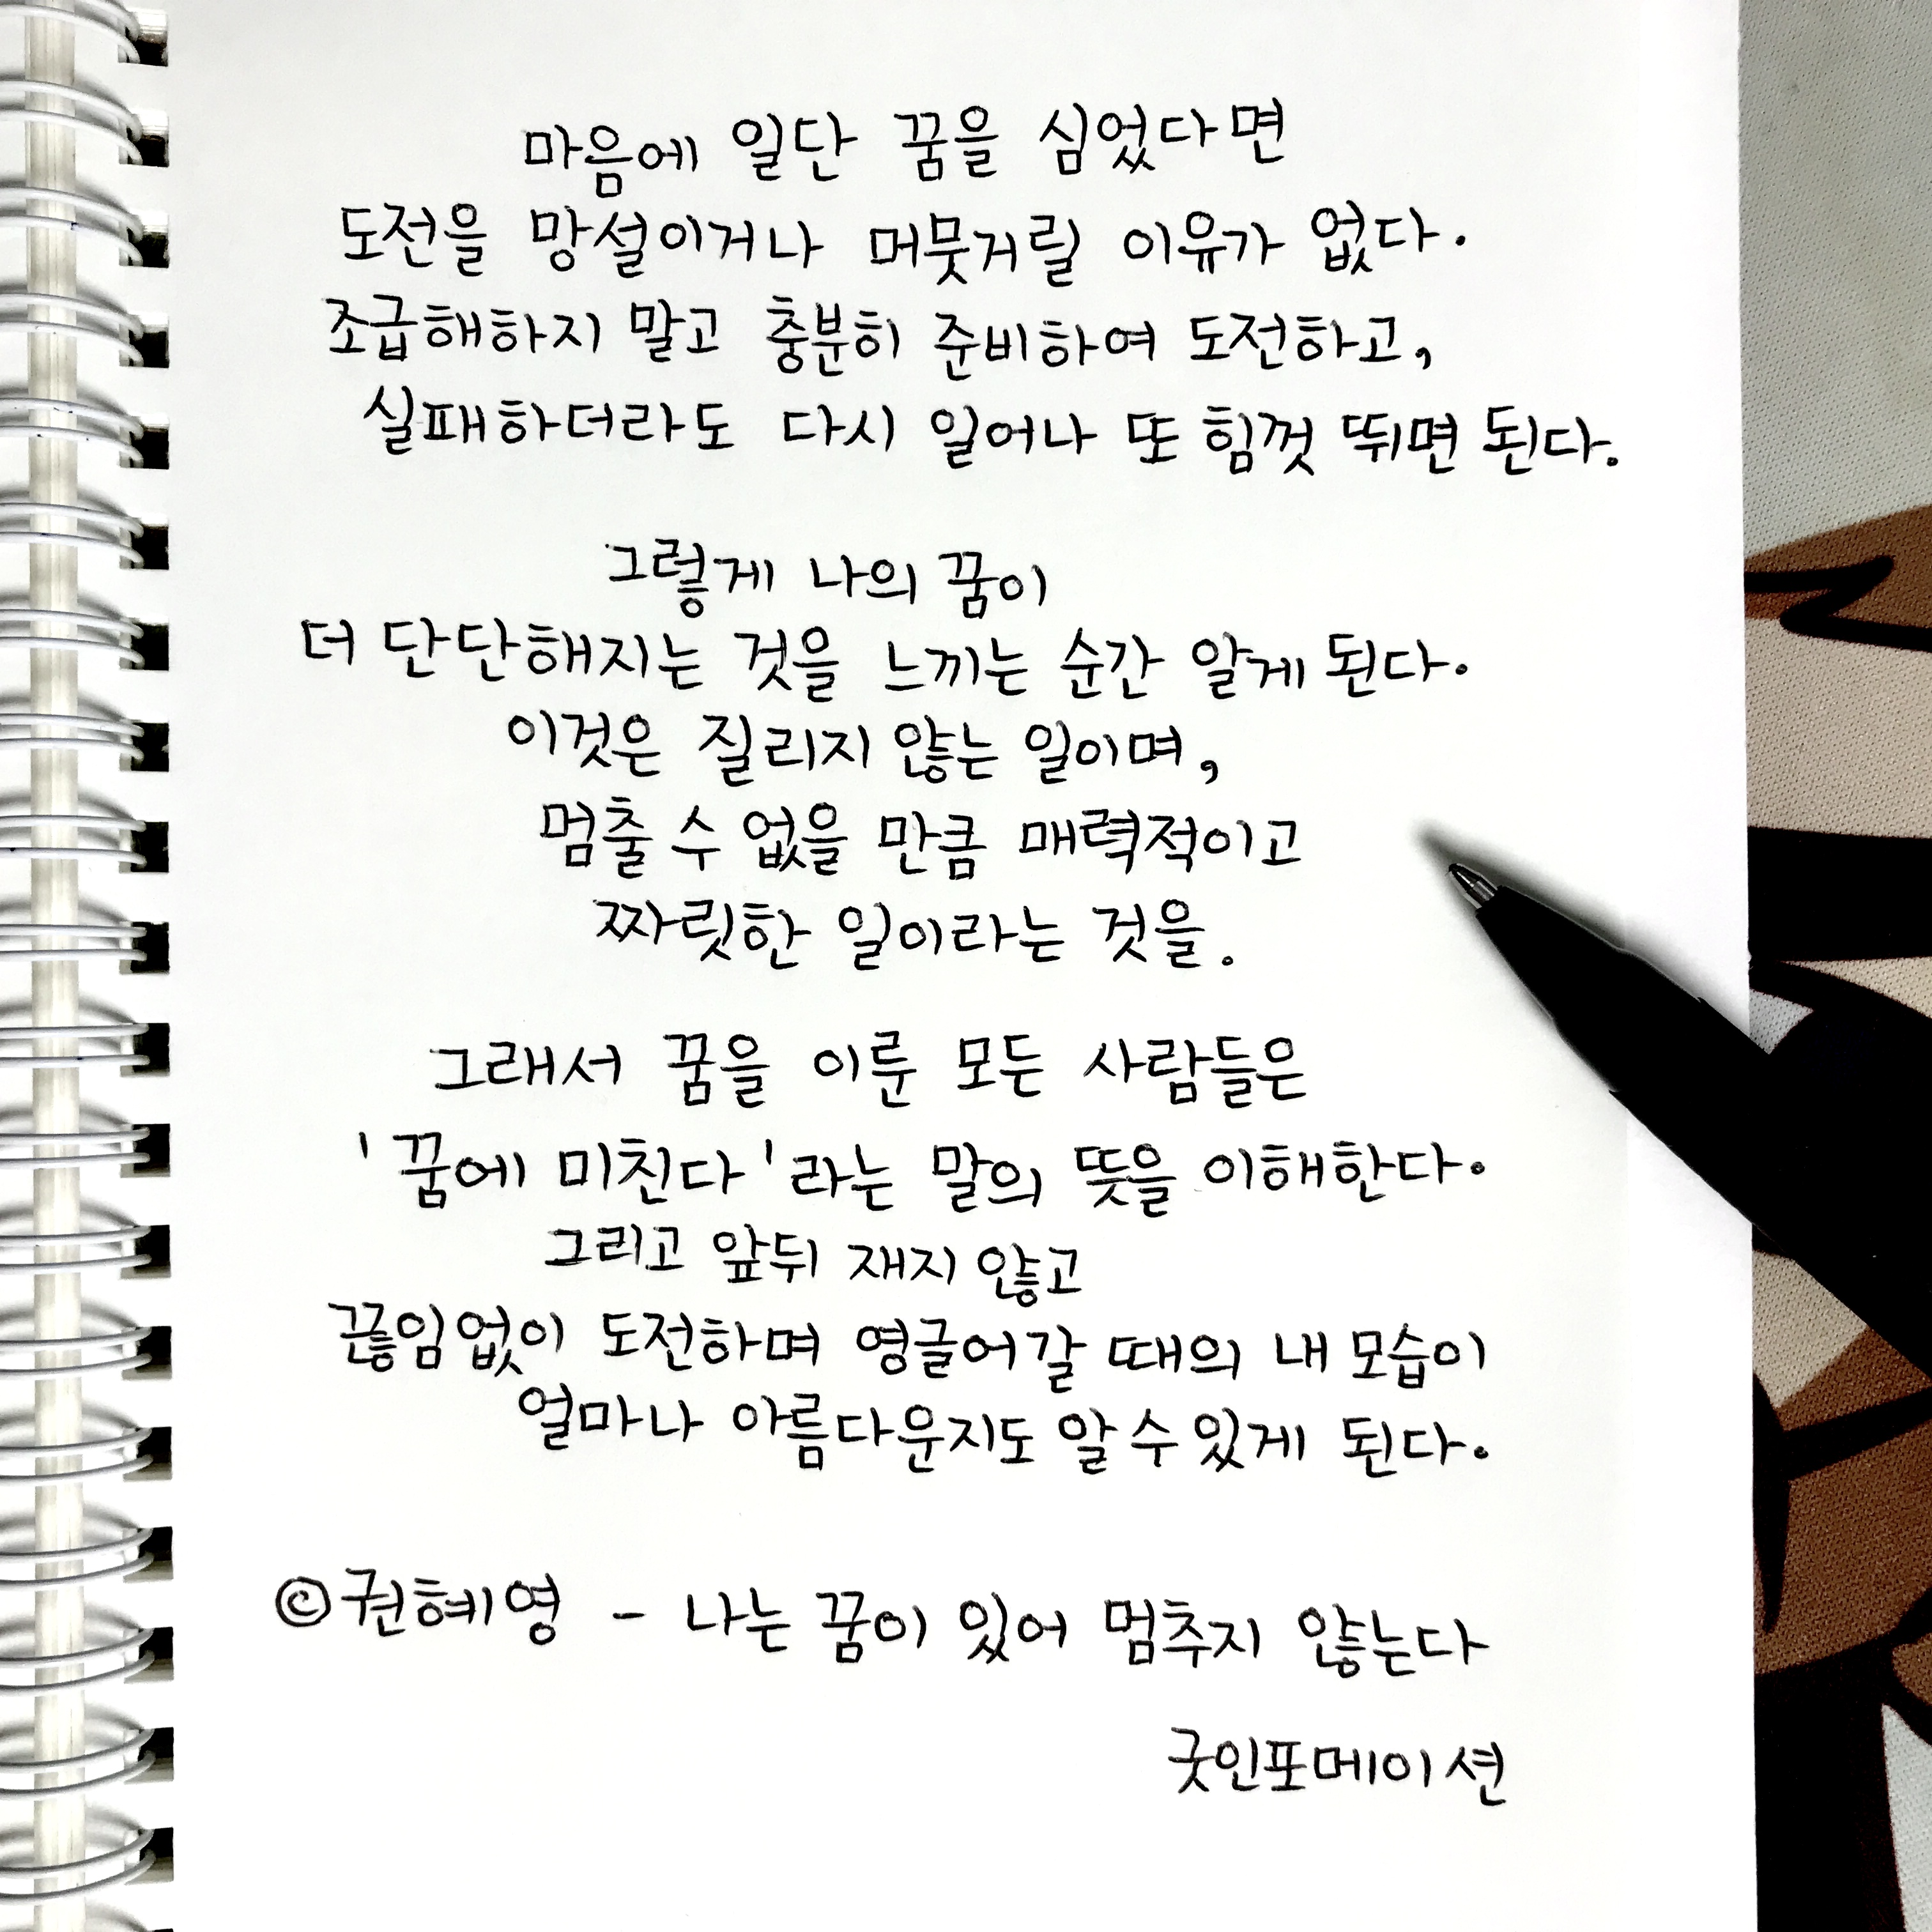 마음에 일단 꿈을 심었다면
도전을 망설이거나 머뭇거릴 이유가 없다.
조급해하지 말고 충분히 준비하여 도전하고,
실패하더라도 다시 일어나 또 힘껏 뛰면 된다.
그렇게 나의 꿈이
더 단단해지는 것을 느끼는 순간 알게 된다.
이것은 질리지 않는 일이며,
멈출 수 없을 만큼 매력적이고
짜릿한 일이라는 것을.
그래서 꿈을 이룬 모든 사람들은
'꿈에 미친다'라는 말의 뜻을 이해한다.
그리고 앞뒤 재지 않고
끊임없이 도전하며 영글어갈 때의 내 모습이
얼마나 아름다운지도 알 수 있게 된다.
©권혜영 - 나는 꿈이 있어 멈추지 않는다
굿인포메이션